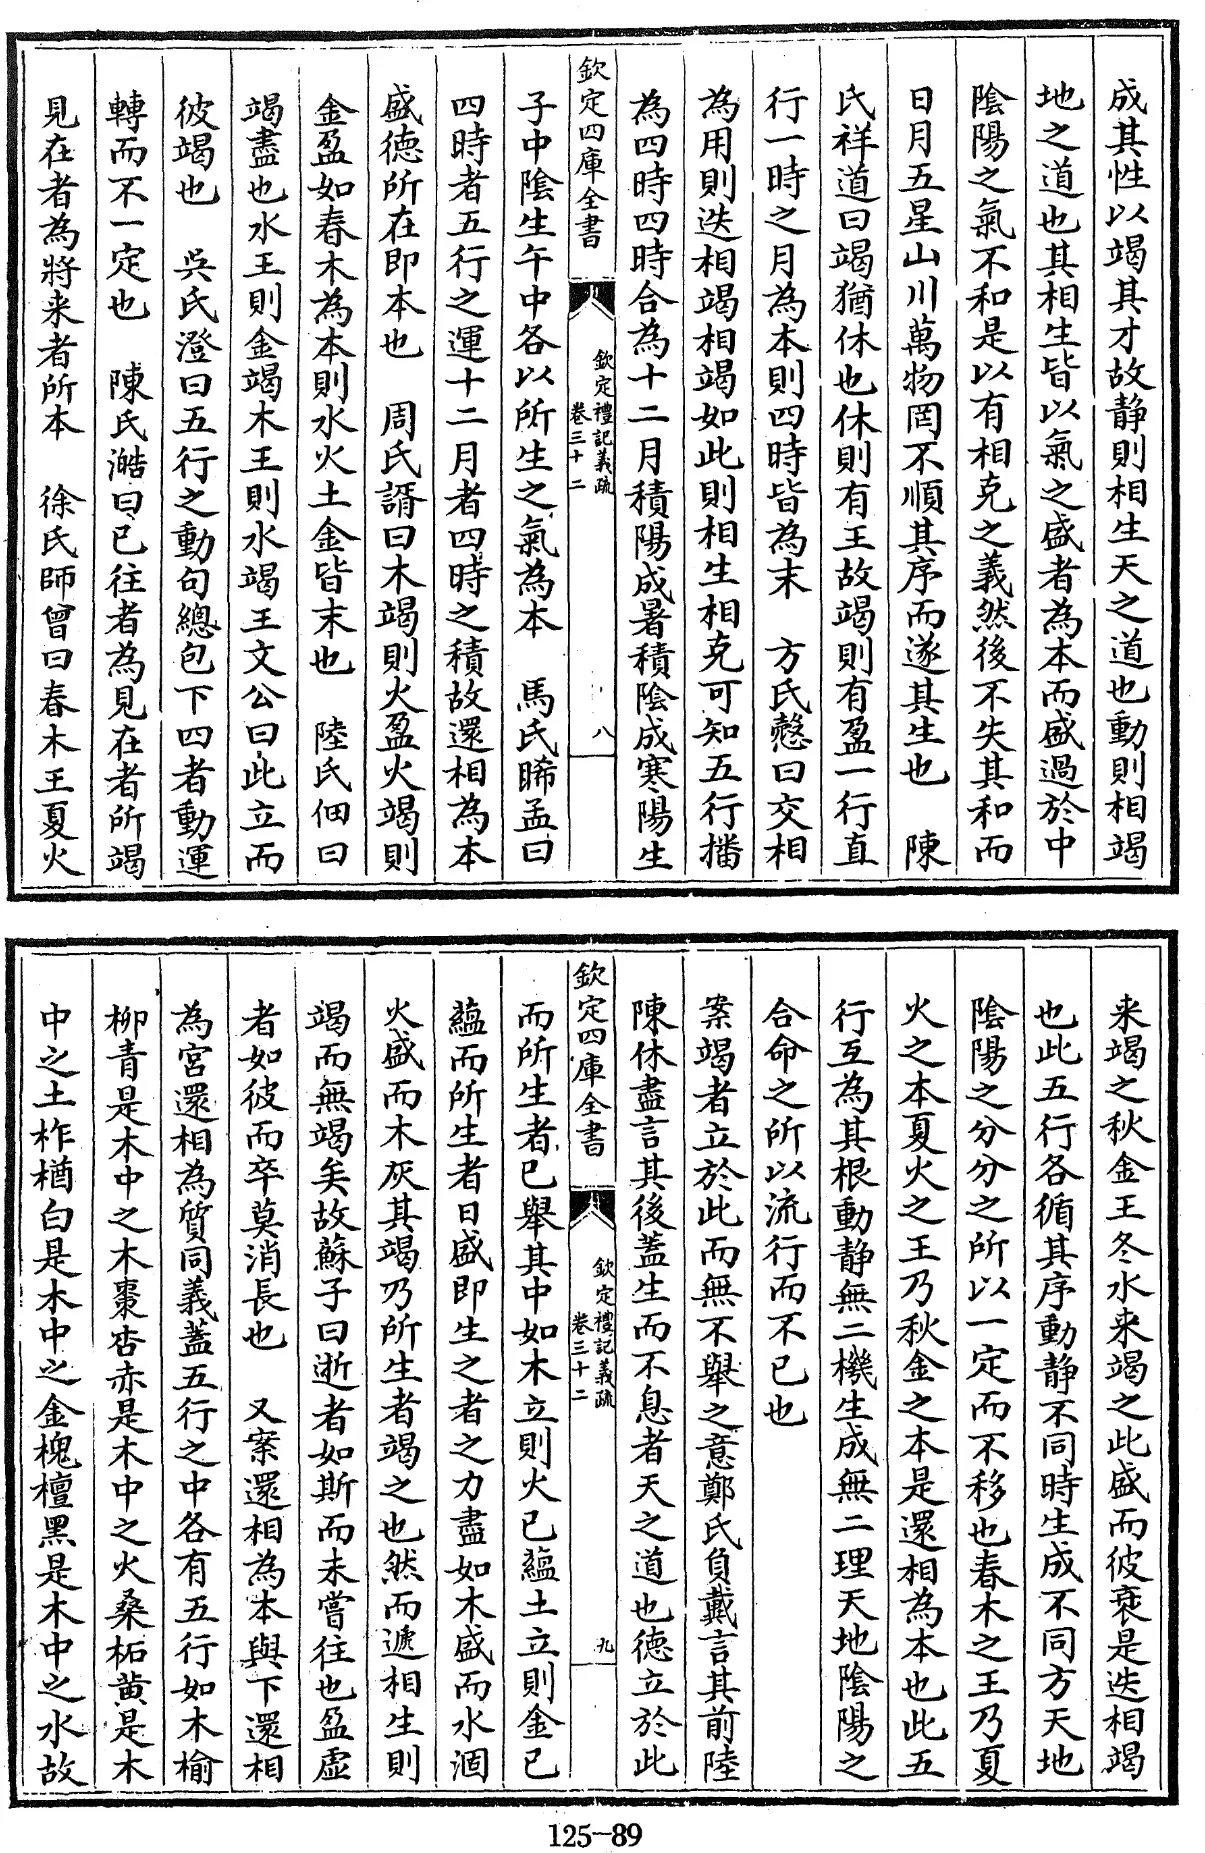 成其性以竭其才故静則相生天之道也動則相竭
地之道也其相生皆以氣之盛者為本而盛過於中
陰陽之氣不和是以有相克之義然後不失其和而
日月五星山川萬物罔不順其序而遂其生也　陳
氏祥道曰竭猶休也休則有王故竭則有盈一行直
行一時之月為本則四時皆為末　方氏慤曰交相
為用則迭相竭相竭如此則相生相克可知五行播
為四時四時合為十二月積陽成暑積陰成寒陽生
欽定四庫全書
欽定禮記義疏
卷三十二
八
子中陰生午中各以所生之氣為本　馬氏睎孟曰
四時者五行之運十二月者四時之積故還相為本
盛德所在即本也　周氏諝曰木竭則火盈火竭則
金盈如春木為本則水火土金皆末也　陸氏佃曰
竭盡也水王則金竭木王則水竭王文公曰此立而
彼竭也　吳氏澄曰五行之動句總包下四者動運
轉而不一定也　陳氏澔曰已往者為見在者所竭
見在者為將来者所本　徐氏師曾曰春木王夏火
来竭之秋金王冬水来竭之此盛而彼衰是迭相竭
也此五行各循其序動静不同時生成不同方天地
陰陽之分分之所以一定而不移也春木之王乃夏
火之本夏火之王乃秋金之本是還相為本也此五
行互為其根動静無二機生成無二理天地陰陽之
合命之所以流行而不已也
案竭者立於此而無不舉之意鄭氏負戴言其前陸
陳休盡言其後蓋生而不息者天之道也徳立於此
欽定四庫全書
欽定禮記義疏
卷三十二
九
而所生者已舉其中如木立則火已蘊土立則金已
蘊而所生者日盛即生之者之力盡如木盛而水涸
火盛而木灰其竭乃所生者竭之也然而遞相生則
竭而無竭矣故蘇子曰逝者如斯而未嘗往也盈虛
者如彼而卒莫消長也　又案還相為本與下還相
為宮還相為質同義蓋五行之中各有五行如木榆
柳青是木中之木棗杏赤是木中之火桑柘黄是木
中之土柞楢白是木中之金槐檀黑是木中之水故
125-89